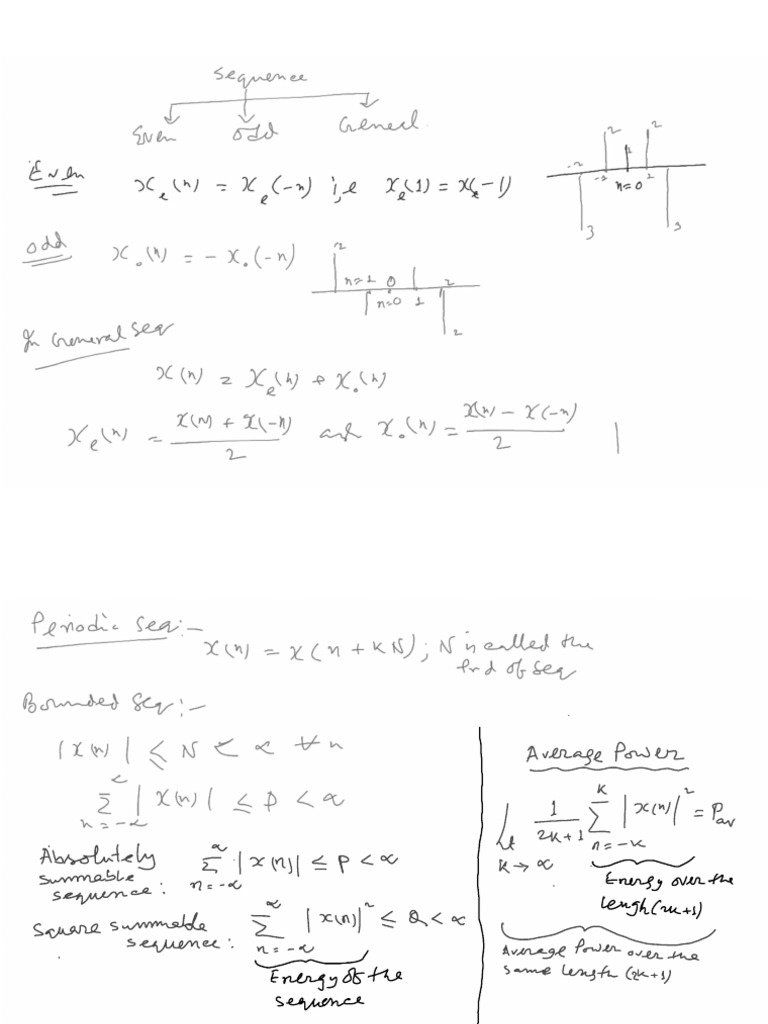 Sequence
Even odd General
Even xₑ(n) = xₑ(-n) i,e xₑ(1) = xₑ(-1)
2 1 2
-2 -1 n=0 1
3 3
odd x₀(n) = - x₀(-n)
2
n=1 0 2
n=0 1
2
In General Seq
x(n) = xₑ(n) + x₀(n)
xₑ(n) = (x(n) + x(-n))/2 and x₀(n) = (x(n) - x(-n))/2
Periodic Seq:-
x(n) = x(n + KN); N is called the
Prd of Seq
Bounded Seq:-
|x(n)| ≤ N < ∝ ∀ n
∑ n=-∝ ∝ |x(n)| ≤ P < ∝
Absolutely summable sequence: ∑ n=-∝ ∝ |x(n)| ≤ P < ∝
Square summable sequence: ∑ n=-∝ ∝ |x(n)|² ≤ Q < ∝
Energy of the
sequence
Average Power
Lt K→∝ 1/(2K+1) ∑ n=-K K |x(n)|² = Pav
Energy over the
lengh (2K+1)
Average Power over the
same length (2K+1)